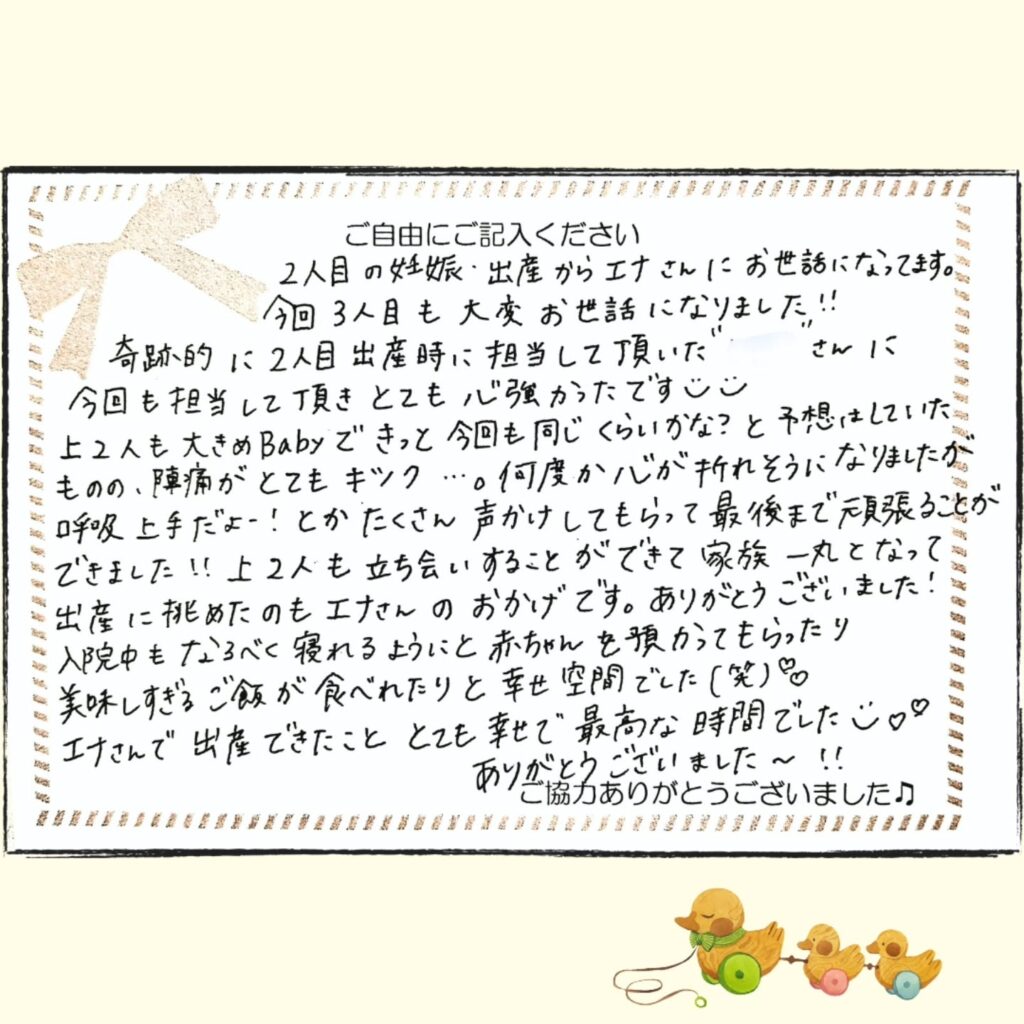 ご自由にご記入ください
2人目の妊娠・出産からエナさんにお世話になってます。
今回3人目も大変お世話になりました!!
奇跡的に2人目出産時に担当して頂いた" "さんに
今回も担当して頂きとても心強かったです
上2人も大きめBabyできっと今回も同じくらいかな?と予想はしていた
ものの、陣痛がとてもキツク…。何度か心が折れそうになりましたが
呼吸上手だよー!とかたくさん声かけしてもらって最後まで頑張ることが
できました!!上2人も立ち会いすることができて家族一丸となって
出産に挑めたのもエナさんのおかげです。ありがとうございました!
入院中もなるべく寝れるようにと赤ちゃんを預かってもらったり
美味しすぎるご飯が食べれたりと幸せ空間でした(笑)♡♡
エナさんで出産できたこととても幸せで最高な時間でした♡♡
ありがとうございました〜!!
ご協力ありがとうございました♫